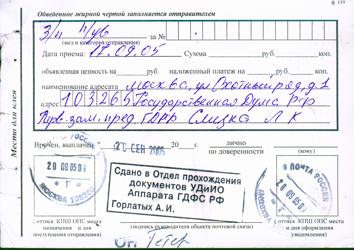 ф 119
Обведенное жирной чертой заполняется отправителем
З/п
за №
(вид и категория отправления)
Дата приема 17.09.05 Сумма руб. коп.
объявленная ценность на руб. наложенный платеж на руб. коп.
наименование адресата Москва, ул Охотный ряд, д.1
адрес 103265 Государственная Дума РФ
Перв. зам. пред. ГДРФ Слизка Л К
Место для клея
Вручен, выплачен лично
20 СЕН 2005
по доверенности (кому)
МОСКВА
ПОЧТА РОССИИ
МОСКВА
Сдано в Отдел прохождения
документов УДиИО
Аппарата ГДФС РФ
Горлатых А.И.
(оттиск КПШ ОПС места назначения и дня поступления отправления)
(подпись руководителя объекта почтовой связи)
(оттиск КПШ ОПС места и дата отправки уведомления)